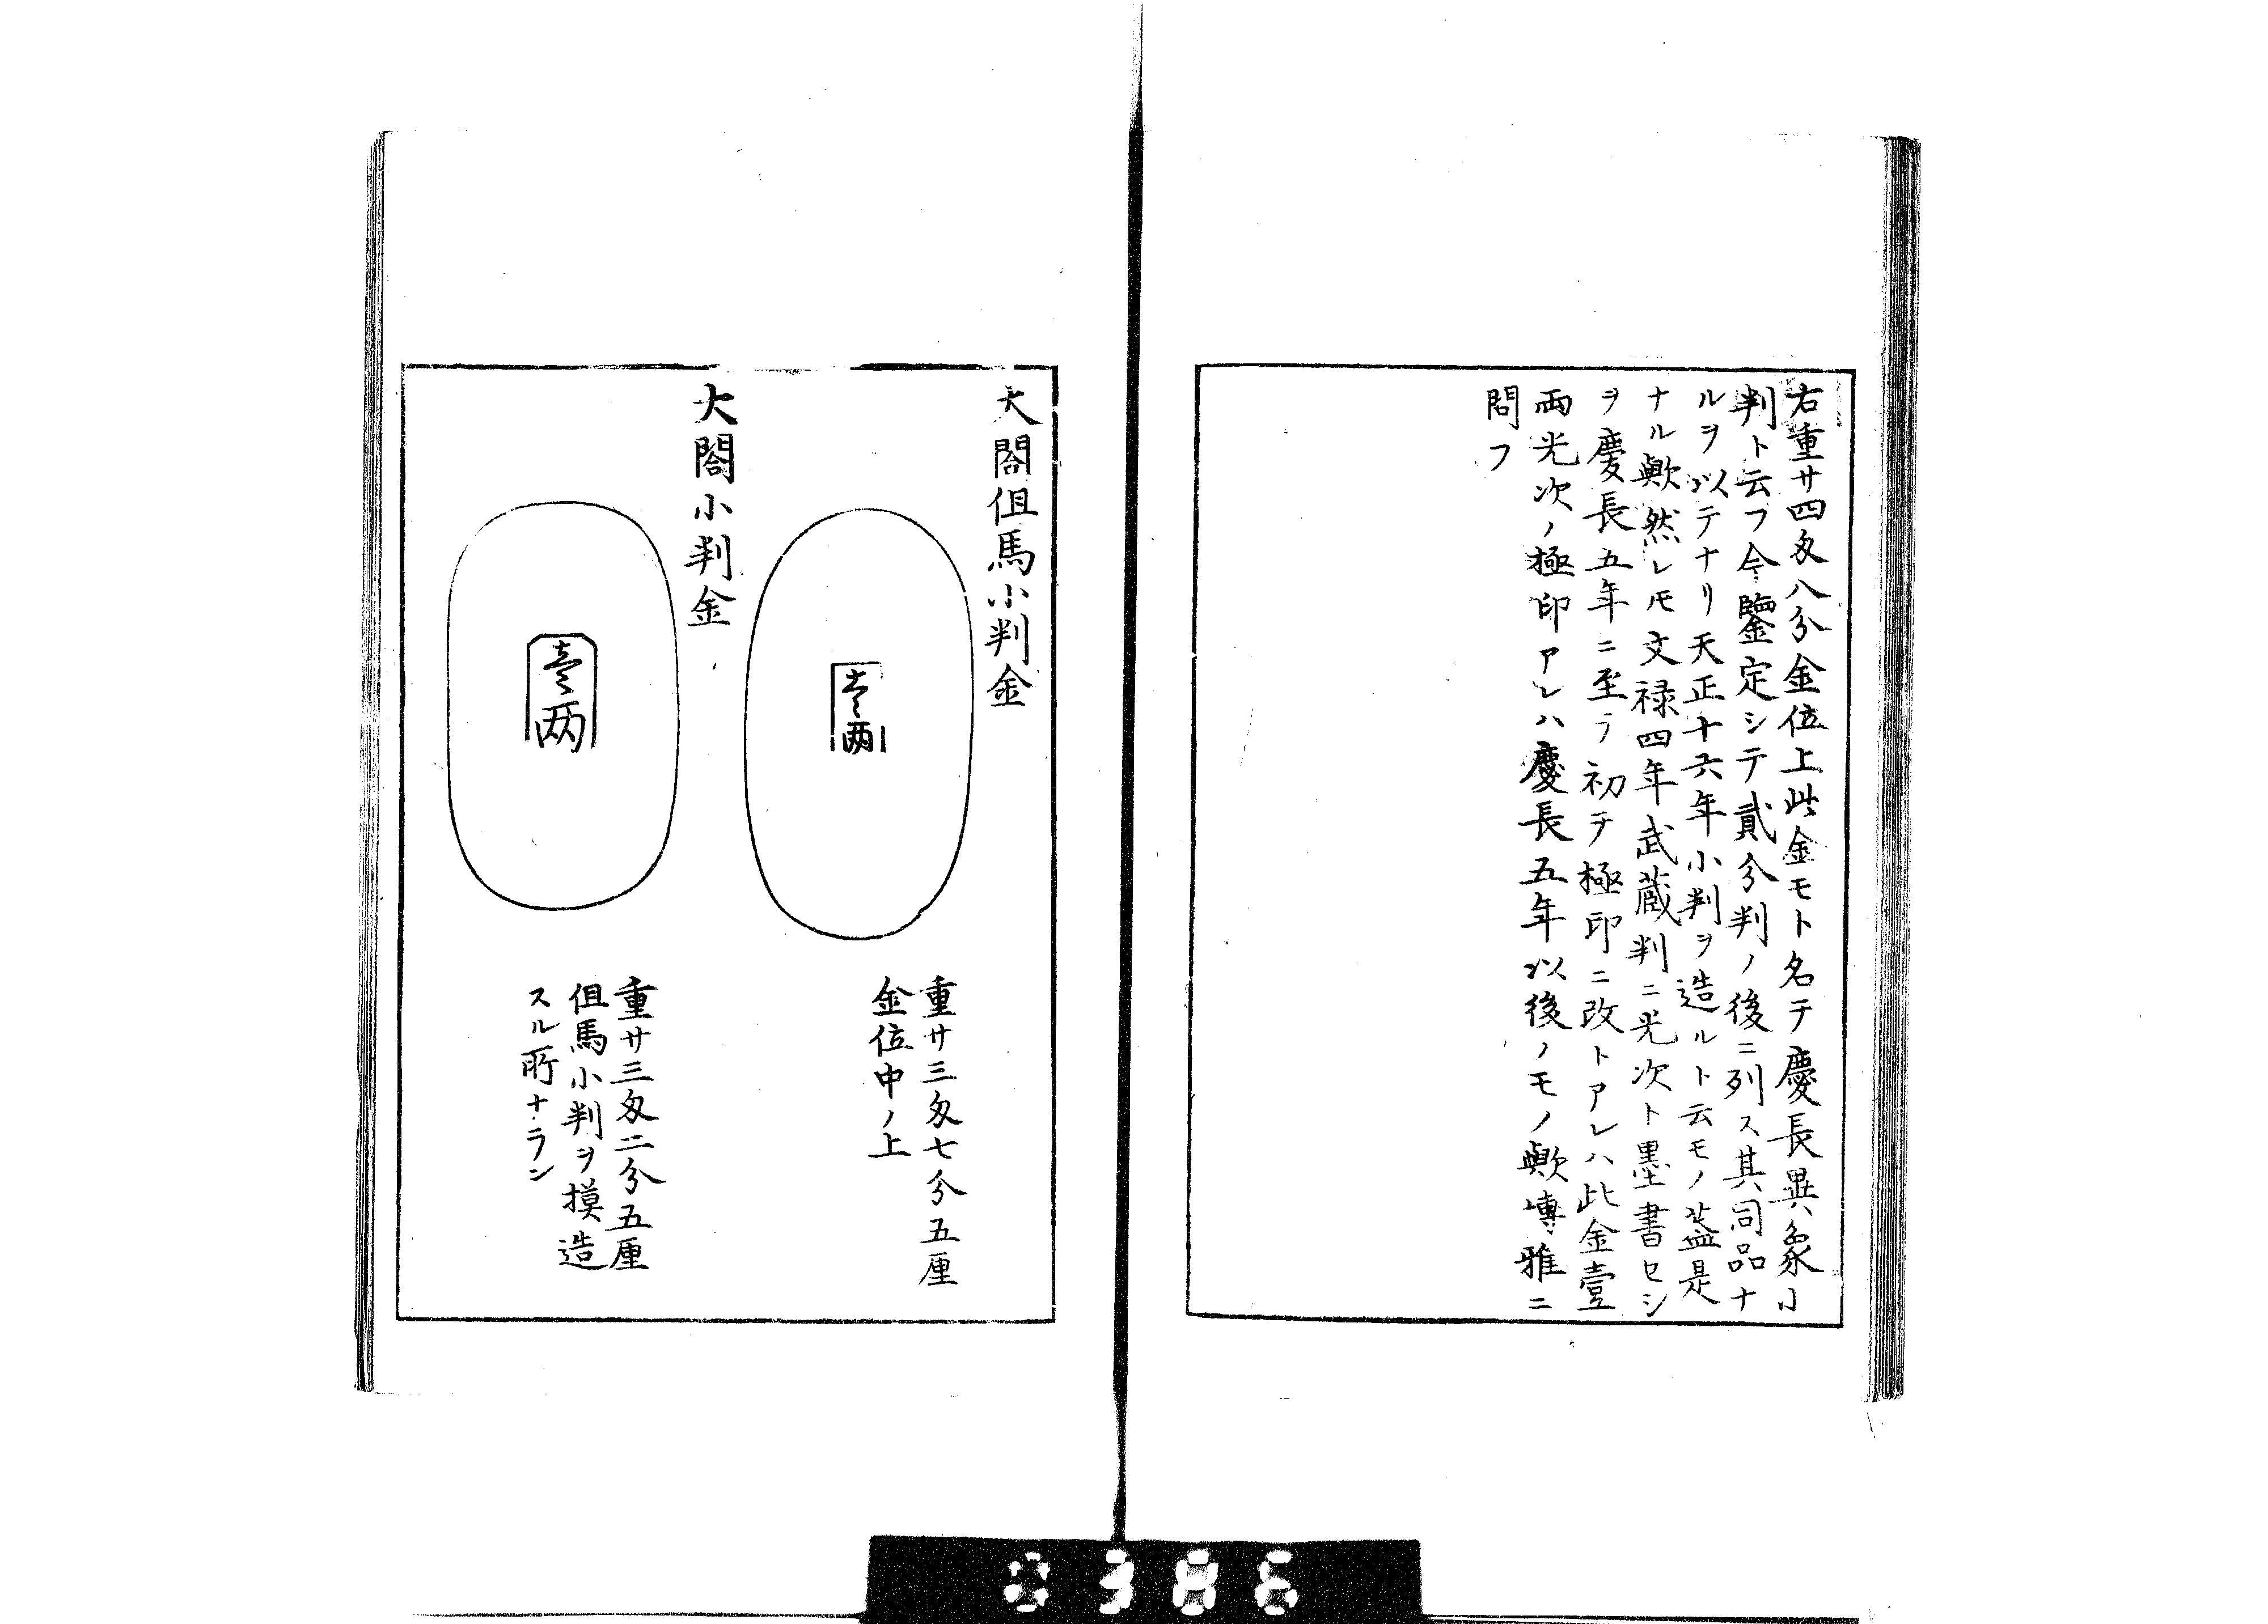 右重廿四匁八分金位上此金モト名テ慶長異象小
判ト云フ今鑒定シテ貳分判ノ後ニ列ス其同品ナ
ルヲ以テナリ天正十六年小判ヲ造ルト云モノ蓋是
ナル歟然レモ文禄四年武蔵判ニ光次ト墨書セシ
ヲ慶長五年ニ至テ初テ極印ニ改トアレハ此金壹
両光次ノ極印アレハ慶長五年以後ノモノ歟博雅ニ
問フ
大閤但馬小判金
壹两
重廿三匁七分五厘
金位中ノ上
大閤小判金
壹两
重廿三匁二分五厘
但馬小判ヲ摸造
スル所ナラン
0386